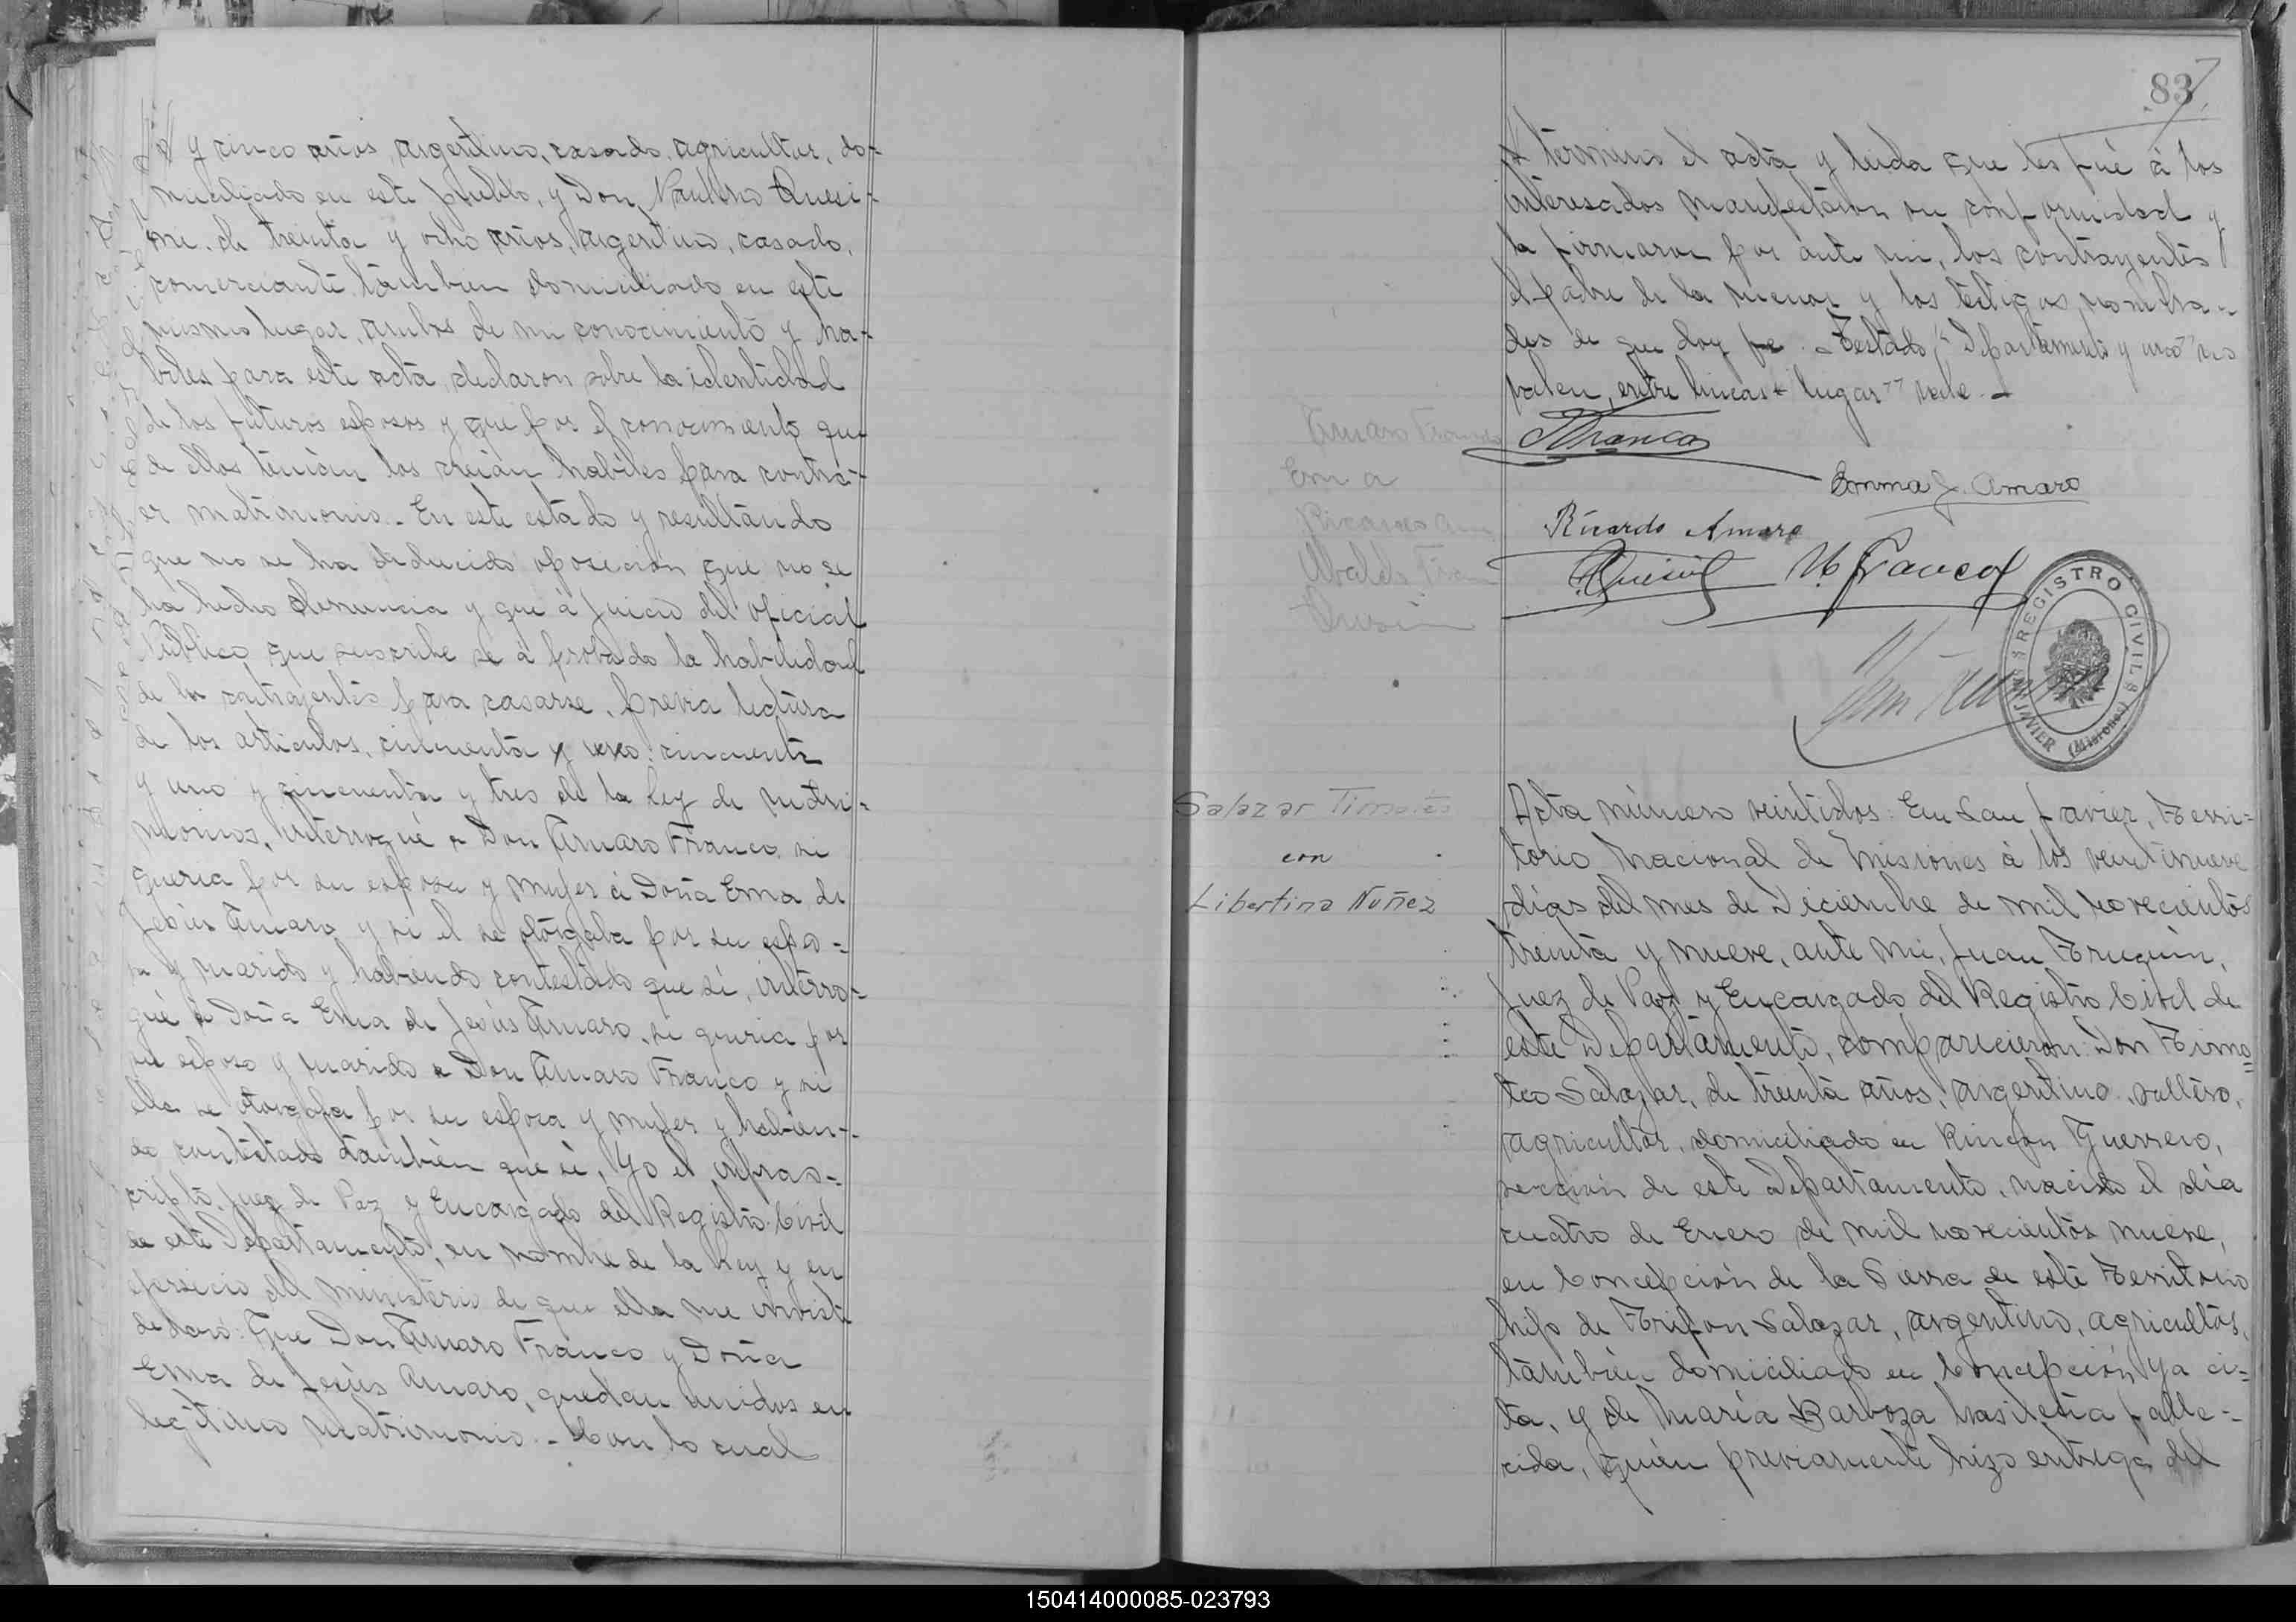 y cinco años, argentino, casado, agricultor, do-
miciliado en este pueblo, y Don Paulino Quesi-
ni, de treinta y ocho años, argentino, casado,
comerciante, tambien domiciliado en este
mismo lugar, ambos de mi conocimiento y ha-
biles para este acta, declaron sobre la identidad
de los futuros esposos y que por el conocimiento que
de ellos tenian los creian habiles para contra-
er matrimonio.- En este estado y resultando
que no se ha deducido oposición que no se
ha hecho denuncia y que á juicio del oficial
Público que suscribe se á probado la habilidad
de los contrayentes para casarse, previa lectura
de los articulos, cincuenta y uno: cincuenta
y uno y cincuenta y tres de la Ley de matri-
monios, interrogué a Don Amaro Franco, si
queria por su esposa y mujer á Doña Ema de
Jesús Amaro y si el se otorgaba por su espo-
so y marido y habiendo contestado que sí, interro-
gué á Doña Ema de Jesús Amaro, si queria por
su esposo y marido a Don Amaro Franco y si
ella se otorgaba por su esposa y mujer y habien-
do contestado también que sí, Yo el infras-
cripto, Juez de Paz y Encargado del Registro Civil
de este Departamento, en nombre de la Ley y en
ejersicio del ministerio de que ella me inviste
declaro: Que Don Amaro Franco y Doña
Ema de Jesús Amaro, quedan unidos en
legítimo matrimonio.- Con lo cual
83
terminó el acta y leida que les fué á los
interesados manifestaron su conformidad y
la firmaron por ante mi, los contrayentes
el padre de la menor y los testigos nombra-
dos de que doy fe.- Testado "Departamento y uno" no
valen, entre lineas "lugar" vale.-
Amaro Franco
Ema
Ricardo
Ubaldo
Quesini
AFranco
Emma J. Amaro
Ricardo Amaro
PQuesini
U Franco
REGISTRO CIVIL
JAVIER (Misiones)
Salazar Timoteo
con
Libertina Nuñez
Acta número veintidos: En San Javier, Terri-
torio Nacional de Misiones á los veintinueve
días del mes de Diciembre de mil novecientos
treinta y nueve, ante mi, Juan Truquin,
Juez de Paz y Encargado del Registro Civil de
este Departamento, comparecieron: Don Timo-
teo Salazar, de treinta años, argentino, soltero,
agricultor, domiciliado en Rincon Guerrero,
sección de este Departamento, nacido el día
cuatro de Enero de mil novecientos nueve,
en Concepción de la Sierra de este Territorio
hijo de Trifon Salazar, argentino, agricultor,
también domiciliado en Concepción ya ci-
ta, y de María Barboza brasileña falle-
cida, quién previamente hizo entrega del
150414000085-023793